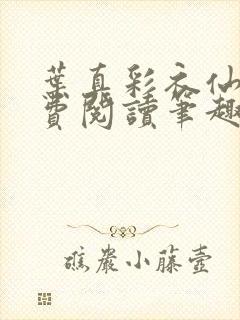 葉真彩衣仙
費閱讀筆趣
礁巖小藤壺